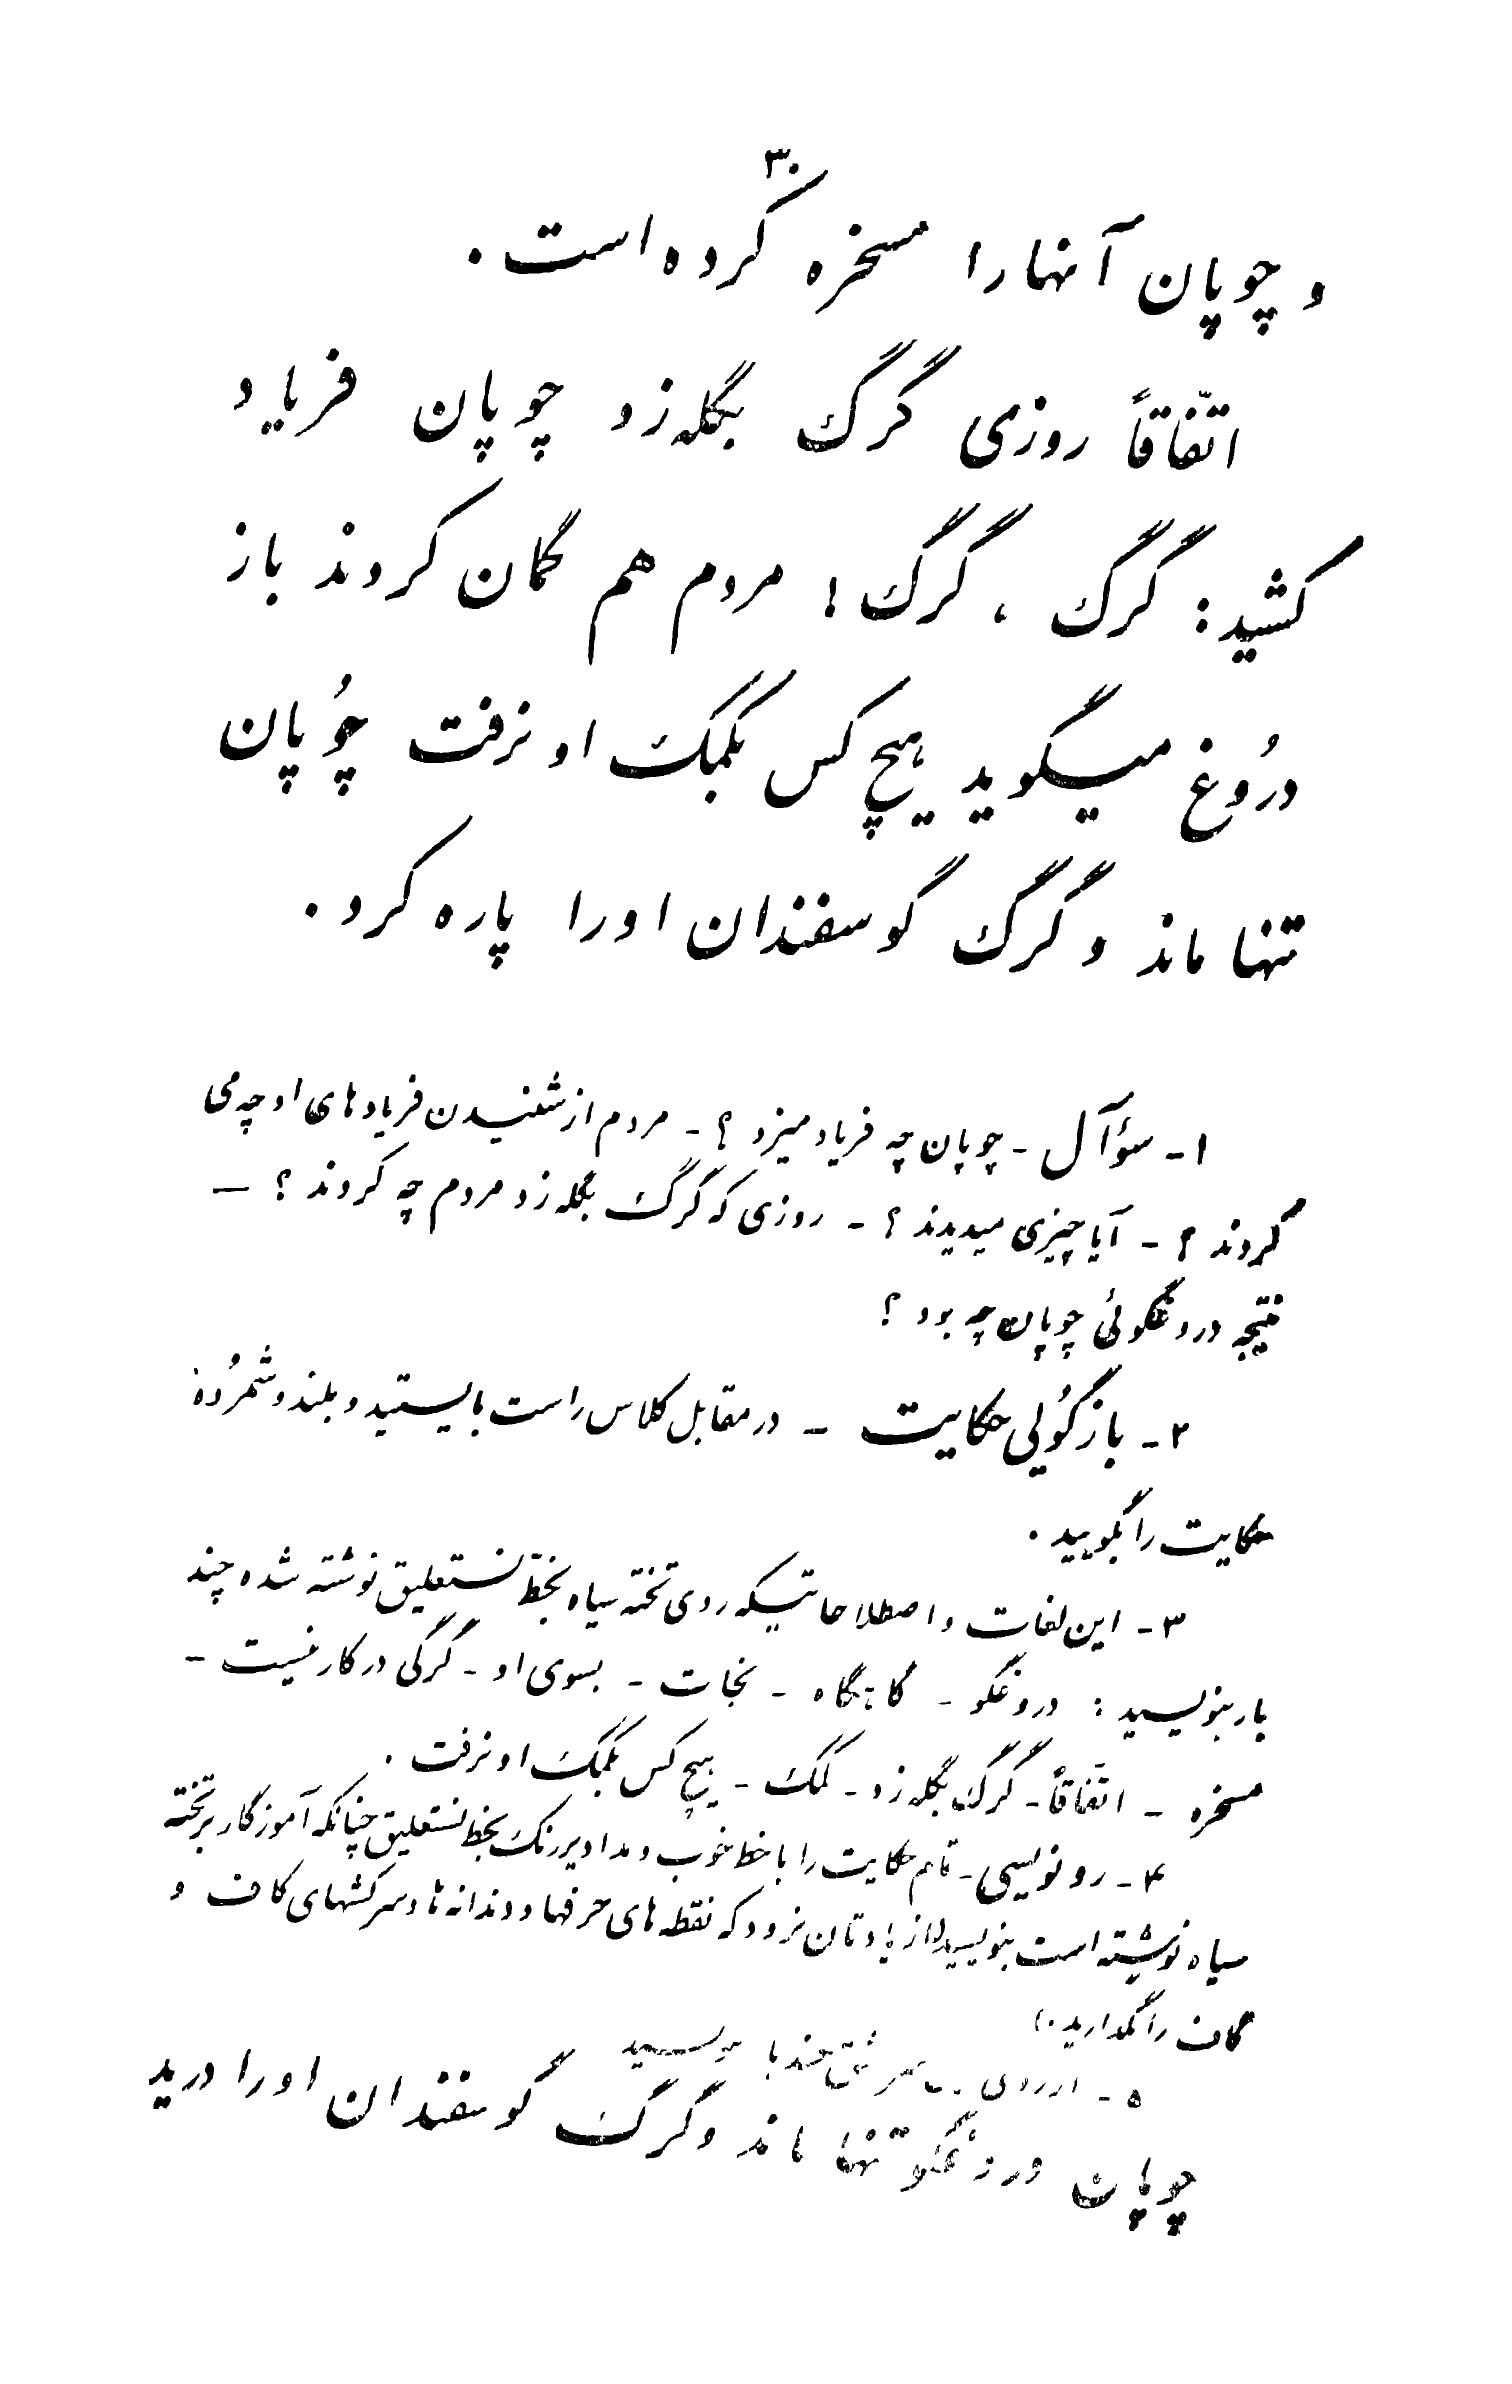 ۳۰
و چوپان آنها را مسخره کرده است.
اتّفاقاً روزی گرگ بگله زد چوپان فریاد
کشید: گرگ، گرگ! مردم هم گمان کردند باز
درُوغ میگوید هیچ کس بکمک او نرفت چُوپان
تنها ماند و گرگ گوسفندان او را پاره کرد.
۱- سؤآل - چوپان چه فریاد میزد؟ - مردم از شنیدن فریادهای او چه می
کردند؟ - آیا چیزی میدیدند؟ - روزی که گرگ بگله زد مردم چه کردند؟ -
نتیجه دروغگوئی چوپان چه بود؟
۲- بازگوُیی حکایت - در مقابل کلاس راست بایستید و بلند و شمرُده
حکایت را بگویید.
۳- این لغات و اصطلاحاتیکه روی تخته سیاه بخطّ نستعلیق نوشته شده چند
بار بنویسید: دروغگو - گاهگاه - نجات - بسوی او - گرگی در کار نیست -
مسخره - اتّفاقاً - گرگ بگله زد - کمک - هیچ کس بکمک او نرفت.
۴- رونویسی - تمام حکایت را با خط خوب و مداد پررنگ بخط نستعلیق چنانکه آموزگار بر تخته
سیاه نوشته است بنویسید (از یادتان نرود که نقطه های حرفها و دندانه ها و سرکشهای کاف و
گاف را بگذارید.)
۵- از روی سرمشق چند بار بنویسید
چوپان دروغگو تنها ماند و گرگ گوسفندان او را درید